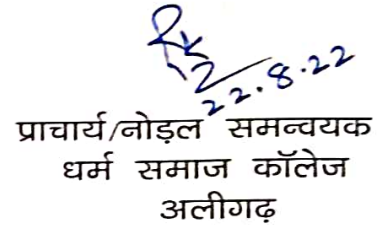 22.8.22
प्राचार्य/नोड़ल समन्वयक
धर्म समाज कॉलेज
अलीगढ़